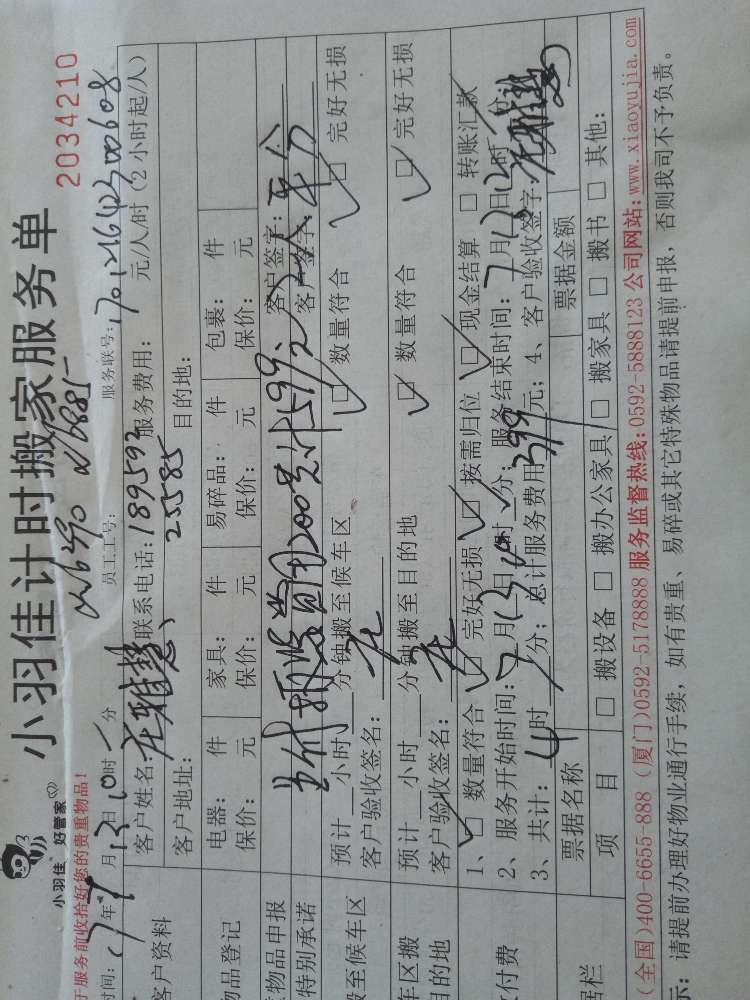 小羽佳 好管家
小羽佳计时搬家服务单
2034210
于服务前收拾好您的贵重物品！
时间：17年7月13日10时分 员工工号： 服务联号：
客户资料 客户姓名 联系电话：189593 服务费用： 元/人/时（2小时起/人）
25585
客户地址： 目的地：
物品登记 电器： 件 家具： 件 易碎品： 件 包裹： 件
保价： 元 保价： 元 保价： 元 保价： 元
物品申报 客户签字：
特别承诺 客户签字：
搬至候车区 预计 小时 分钟搬至候车区 □ 数量符合 □ 完好无损
客户验收签名：
车区搬 预计 小时 分钟搬至目的地 □ 数量符合 □ 完好无损
目的地 客户验收签名：
付费 1、□ 数量符合 □ 完好无损 □ 按需归位 □ 现金结算 □ 转账汇款
2、服务开始时间：7月13日 时 分；服务结束时间：7月13日 时 分
3、共计：4时 分；总计服务费用399元；4、客户验收签字：
据栏 票据名称 票据金额
项 目 □ 搬设备 □ 搬办公家具 □ 搬家具 □ 搬书 □ 其他：
（全国）400-6655-888（厦门）0592-5178888 服务监督热线：0592-5888123 公司网站：www.xiaoyujia.com
示：请提前办理好物业通行手续，如有贵重、易碎或其它特殊物品请提前申报，否则我司不予负责。